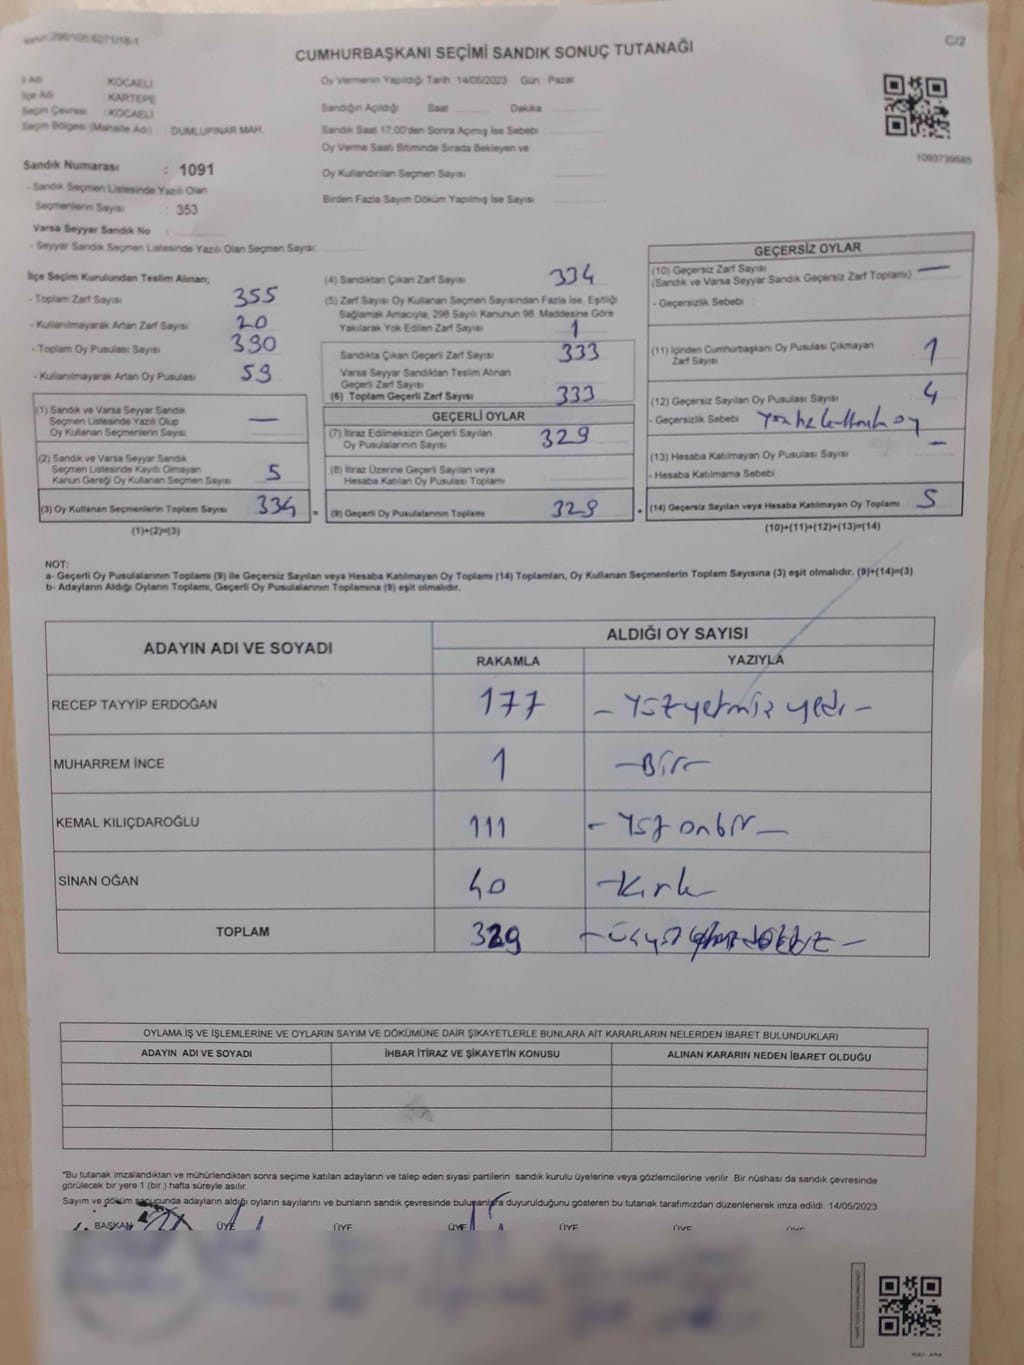 C/2
CUMHURBAŞKANI SEÇİMİ SANDIK SONUÇ TUTANAĞI
İl Adı KOCAELİ
İlçe Adı KARTEPE
Seçim Çevresi : KOCAELİ
Seçim Bölgesi (Mahalle Adı) : DUMLUPINAR MAH.
Sandık Numarası : 1091
- Sandık Seçmen Listesinde Yazılı Olan
Seçmenlerin Sayısı : 353
Varsa Seyyar Sandık No :
- Seyyar Sandık Seçmen Listesinde Yazılı Olan Seçmen Sayısı:
Oy Vermenin Yapıldığı Tarih 14/05/2023 Gün Pazar
Sandığın Açıldığı Saat Dakika
Sandık Saat 17:00'den Sonra Açımış İse Sebebi
Oy Verme Saati Bitiminde Sırada Bekleyen ve
Oy Kullandırılan Seçmen Sayısı
Birden Fazla Sayım Döküm Yapılmış İse Sayısı
1093739585
İlçe Seçim Kurulundan Teslim Alınan;
- Toplam Zarf Sayısı 355
- Kullanılmayarak Artan Zarf Sayısı 20
- Toplam Oy Pusulası Sayısı 390
- Kullanılmayarak Artan Oy Pusulası 59
(1) Sandık ve Varsa Seyyar Sandık
Seçmen Listesinde Yazılı Olup
Oy Kullanan Seçmenlerin Sayısı —
(2) Sandık ve Varsa Seyyar Sandık
Seçmen Listesinde Kayıtlı Olmayan
Kanun Gereği Oy Kullanan Seçmen Sayısı 5
(3) Oy Kullanan Seçmenlerin Toplam Sayısı 334
(1)+(2)=(3)
(4) Sandıktan Çıkan Zarf Sayısı 334
(5) Zarf Sayısı Oy Kullanan Seçmen Sayısından Fazla İse, Eşitliği
Sağlamak Amacıyla, 298 Sayılı Kanunun 98. Maddesine Göre
Yakılarak Yok Edilen Zarf Sayısı 1
Sandıkta Çıkan Geçerli Zarf Sayısı 333
Varsa Seyyar Sandıktan Teslim Alınan
Geçerli Zarf Sayısı
(6) Toplam Geçerli Zarf Sayısı 333
GEÇERLİ OYLAR
(7) İtiraz Edilmeksizin Geçerli Sayılan
Oy Pusulalarının Sayısı 329
(8) İtiraz Üzerine Geçerli Sayılan veya
Hesaba Katılan Oy Pusulası Toplamı
= (9) Geçerli Oy Pusulalarının Toplamı 329
GEÇERSİZ OYLAR
(10) Geçersiz Zarf Sayısı —
(Sandık ve Varsa Seyyar Sandık Geçersiz Zarf Toplamı)
- Geçersizlik Sebebi :
(11) İçinden Cumhurbaşkanı Oy Pusulası Çıkmayan
Zarf Sayısı 1
(12) Geçersiz Sayılan Oy Pusulası Sayısı 4
- Geçersizlik Sebebi oy
(13) Hesaba Katılmayan Oy Pusulası Sayısı —
- Hesaba Katılmama Sebebi :
+ (14) Geçersiz Sayılan veya Hesaba Katılmayan Oy Toplamı 5
(10)+(11)+(12)+(13)=(14)
NOT:
a- Geçerli Oy Pusulalarının Toplamı (9) ile Geçersiz Sayılan veya Hesaba Katılmayan Oy Toplamı (14) Toplamları, Oy Kullanan Seçmenlerin Toplam Sayısına (3) eşit olmalıdır. (9)+(14)=(3)
b- Adayların Aldığı Oyların Toplamı, Geçerli Oy Pusulalarının Toplamına (9) eşit olmalıdır.
ADAYIN ADI VE SOYADI
ALDIĞI OY SAYISI
RAKAMLA YAZIYLA
RECEP TAYYİP ERDOĞAN 177 - Yüzyetmiş yedi -
MUHARREM İNCE 1 - Bir -
KEMAL KILIÇDAROĞLU 111 - Yüz onbir -
SİNAN OĞAN 40 - Kırk
TOPLAM 329
OYLAMA İŞ VE İŞLEMLERİNE VE OYLARIN SAYIM VE DÖKÜMÜNE DAİR ŞİKAYETLERLE BUNLARA AİT KARARLARIN NELERDEN İBARET BULUNDUKLARI
ADAYIN ADI VE SOYADI İHBAR İTİRAZ VE ŞİKAYETİN KONUSU ALINAN KARARIN NEDEN İBARET OLDUĞU
"Bu tutanak imzalandıktan ve mühürlendikten sonra seçime katılan adayların ve talep eden siyasi partilerin sandık kurulu üyelerine veya gözlemcilerine verilir. Bir nüshası da sandık çevresinde
görülecek bir yere 1 (bir) hafta süreyle asılır.
Sayım ve döküm sonucunda adayların aldığı oyların sayılarını ve bunların sandık çevresinde bulunanlara duyurulduğunu gösteren bu tutanak tarafımızdan düzenlenerek imza edildi. 14/05/2023
BAŞKAN ÜYE ÜYE ÜYE ÜYE ÜYE ÜYE